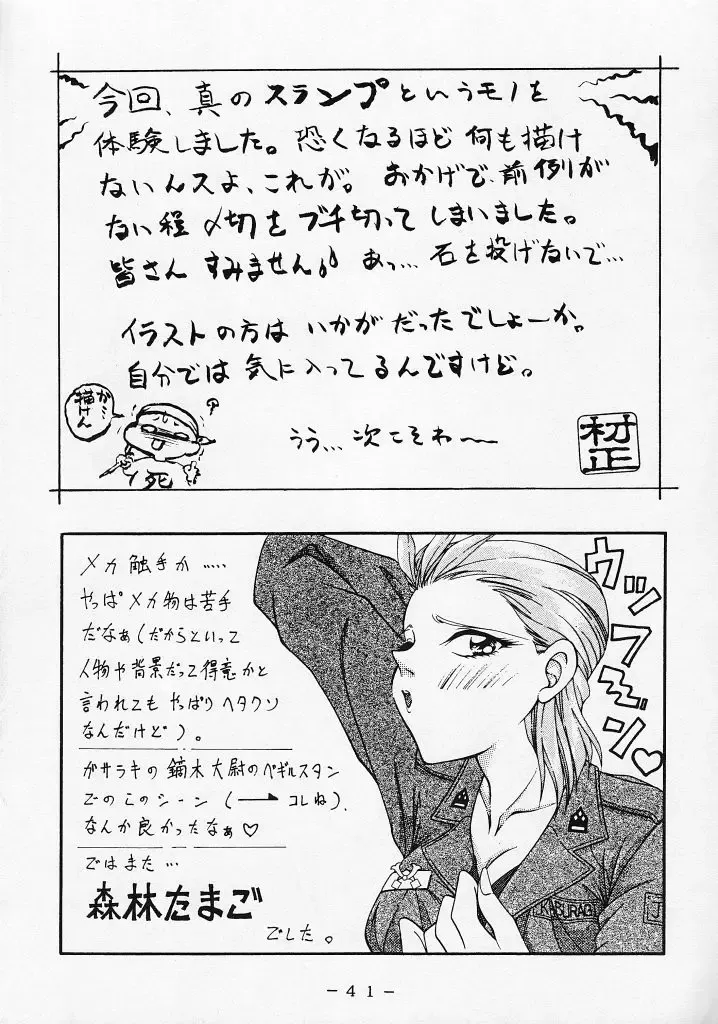 今回、真のスランプというモノを
体験しました。恐くなるほど何も描け
ないんスよ、これが。おかげで、前例が
ない程〆切をブチ切ってしまいました。
皆さんすみません♪ あっ…石を投げないで…
イラストの方はいかがだったでしょーか。
自分では気に入ってるんですけど。
が…
描けん
死
うう…次こそわ〜
村正
メカ触手か……
やっぱメカ物は苦手
だなぁ(だからといって
人物や背景だって得意かと
言われてもやっぱりヘタクソ
なんだけど)。
ガサラキの鏑木大尉のベギルスタン
でのこのシーン(→コレね)、
なんか良かったなぁ♡
ではまた…
森林たまご
でした。
ウッフーン♡
KABURAGI
J
- 41 -